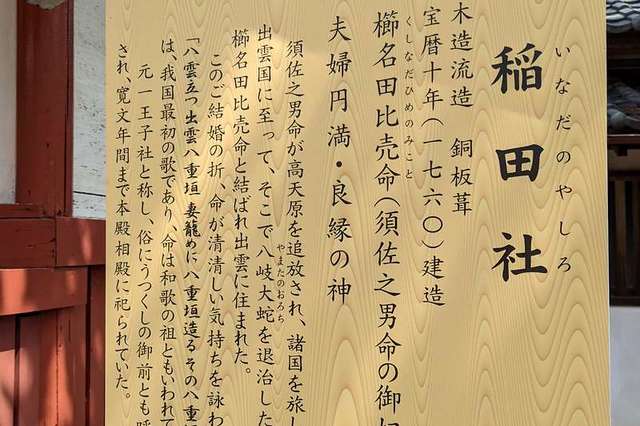 いなだのやしろ
稲田社
木造流造 銅板葺
宝暦十年(一七六〇)建造
くしなだひめのみこと
櫛名田比売命(須佐之男命の御
夫婦円満・良縁の神
須佐之男命が高天原を追放され、諸国を旅し
やまたのおろち
出雲国に至って、そこで八岐大蛇を退治した
櫛名田比売命と結ばれ出雲に住まれた。
このご結婚の折、命が清清しい気持ちを詠わ
「八雲立つ出雲八重垣妻籠めに八重垣造るその八重垣
は、我国最初の歌であり、命は和歌の祖ともいわれて
元一王子社と称し、俗にうつくしの御前とも呼
され、寛文年間まで本殿相殿に祀られていた。